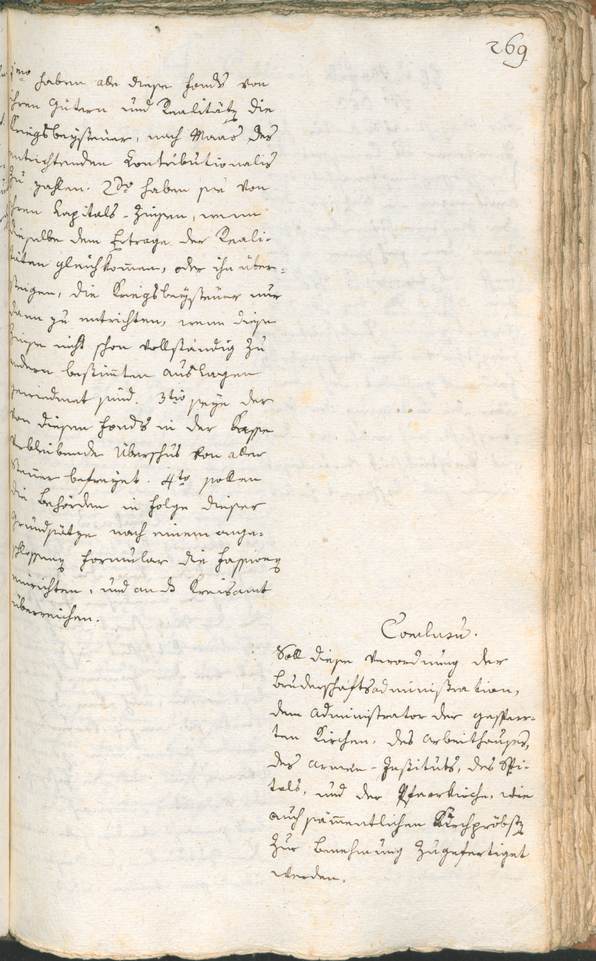 269
1mo haben alle diese Fonds von
ihren Gütern und Realitäten die
Kriegsbeysteuer, nach Maas des
entrichtenden Kontributionalis
zu zahlen. 2do haben sie von
ihren Kapitals-Zinsen, wenn
dieselbe dem Ertrage der Reali-
täten gleichkom̄en, oder ihn über-
steigen, die Kriegsbeysteuer nur
dann zu entrichten, wenn diese
Zinsen nicht schon vollständig zu
andern bestim̄ten Auslagen
gewiedmet sind. 3tio seye der
von diesen Fonds in der Kasse
verbleibende Überschus von aller
Steuer befreyet. 4to sollen
die Behörden in Folge dieser
Grundsätze nach einem ange-
schlossenen Formular die Fassionen
einrichten, und an das Kreisamt
überreichen.
Conclusu.
Soll diese Verordnung der
Bruderschaftsadministration,
dem Administrator der gesperr-
ten Kirchen, des Arbeithauses,
des Armen-Instituts, des Spi-
tals, und der Pfarrkirche, wie
auch säm̄entlichen Kirchpröbsten
zur Benehmung zugefertiget
werden.